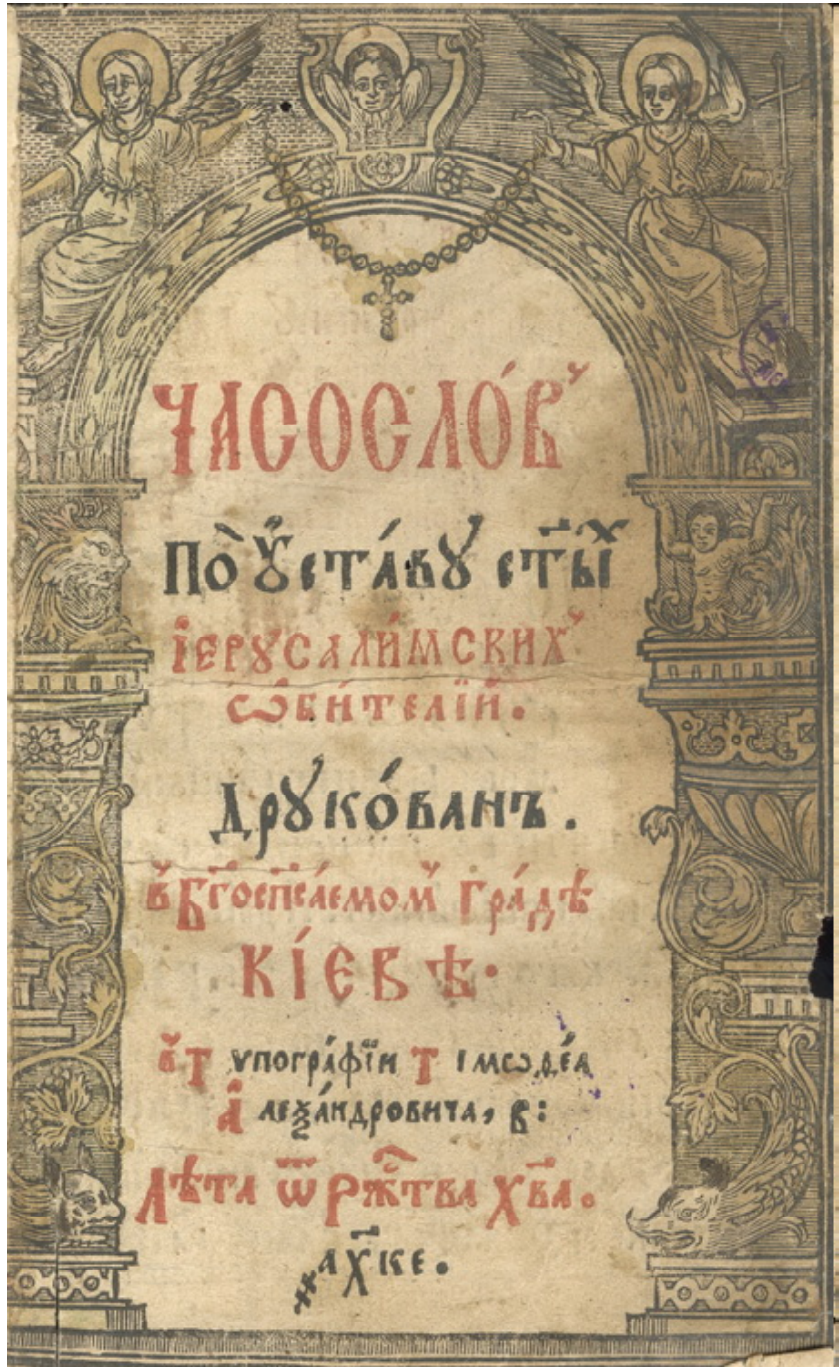 ЧАСОСЛО́В
По̀ Ꙋ҆ста́вꙋ ст҃ы́х
І҆ЕРꙊСАЛИ́МСКИХ
Ѡ҆БИ́ТЕЛІЙ.
Дрꙋко́ванъ.
в Бг҃оспсⷭ҇а́емом Гра́дѣ
КІ́ЕВѢ.
в Тѵпогра́фїи Тімоѳе́а
А҆леѯа́ндровича, в:
Лѣта ѿ Рж҃тва Хв҃а.
҂а҃хке.